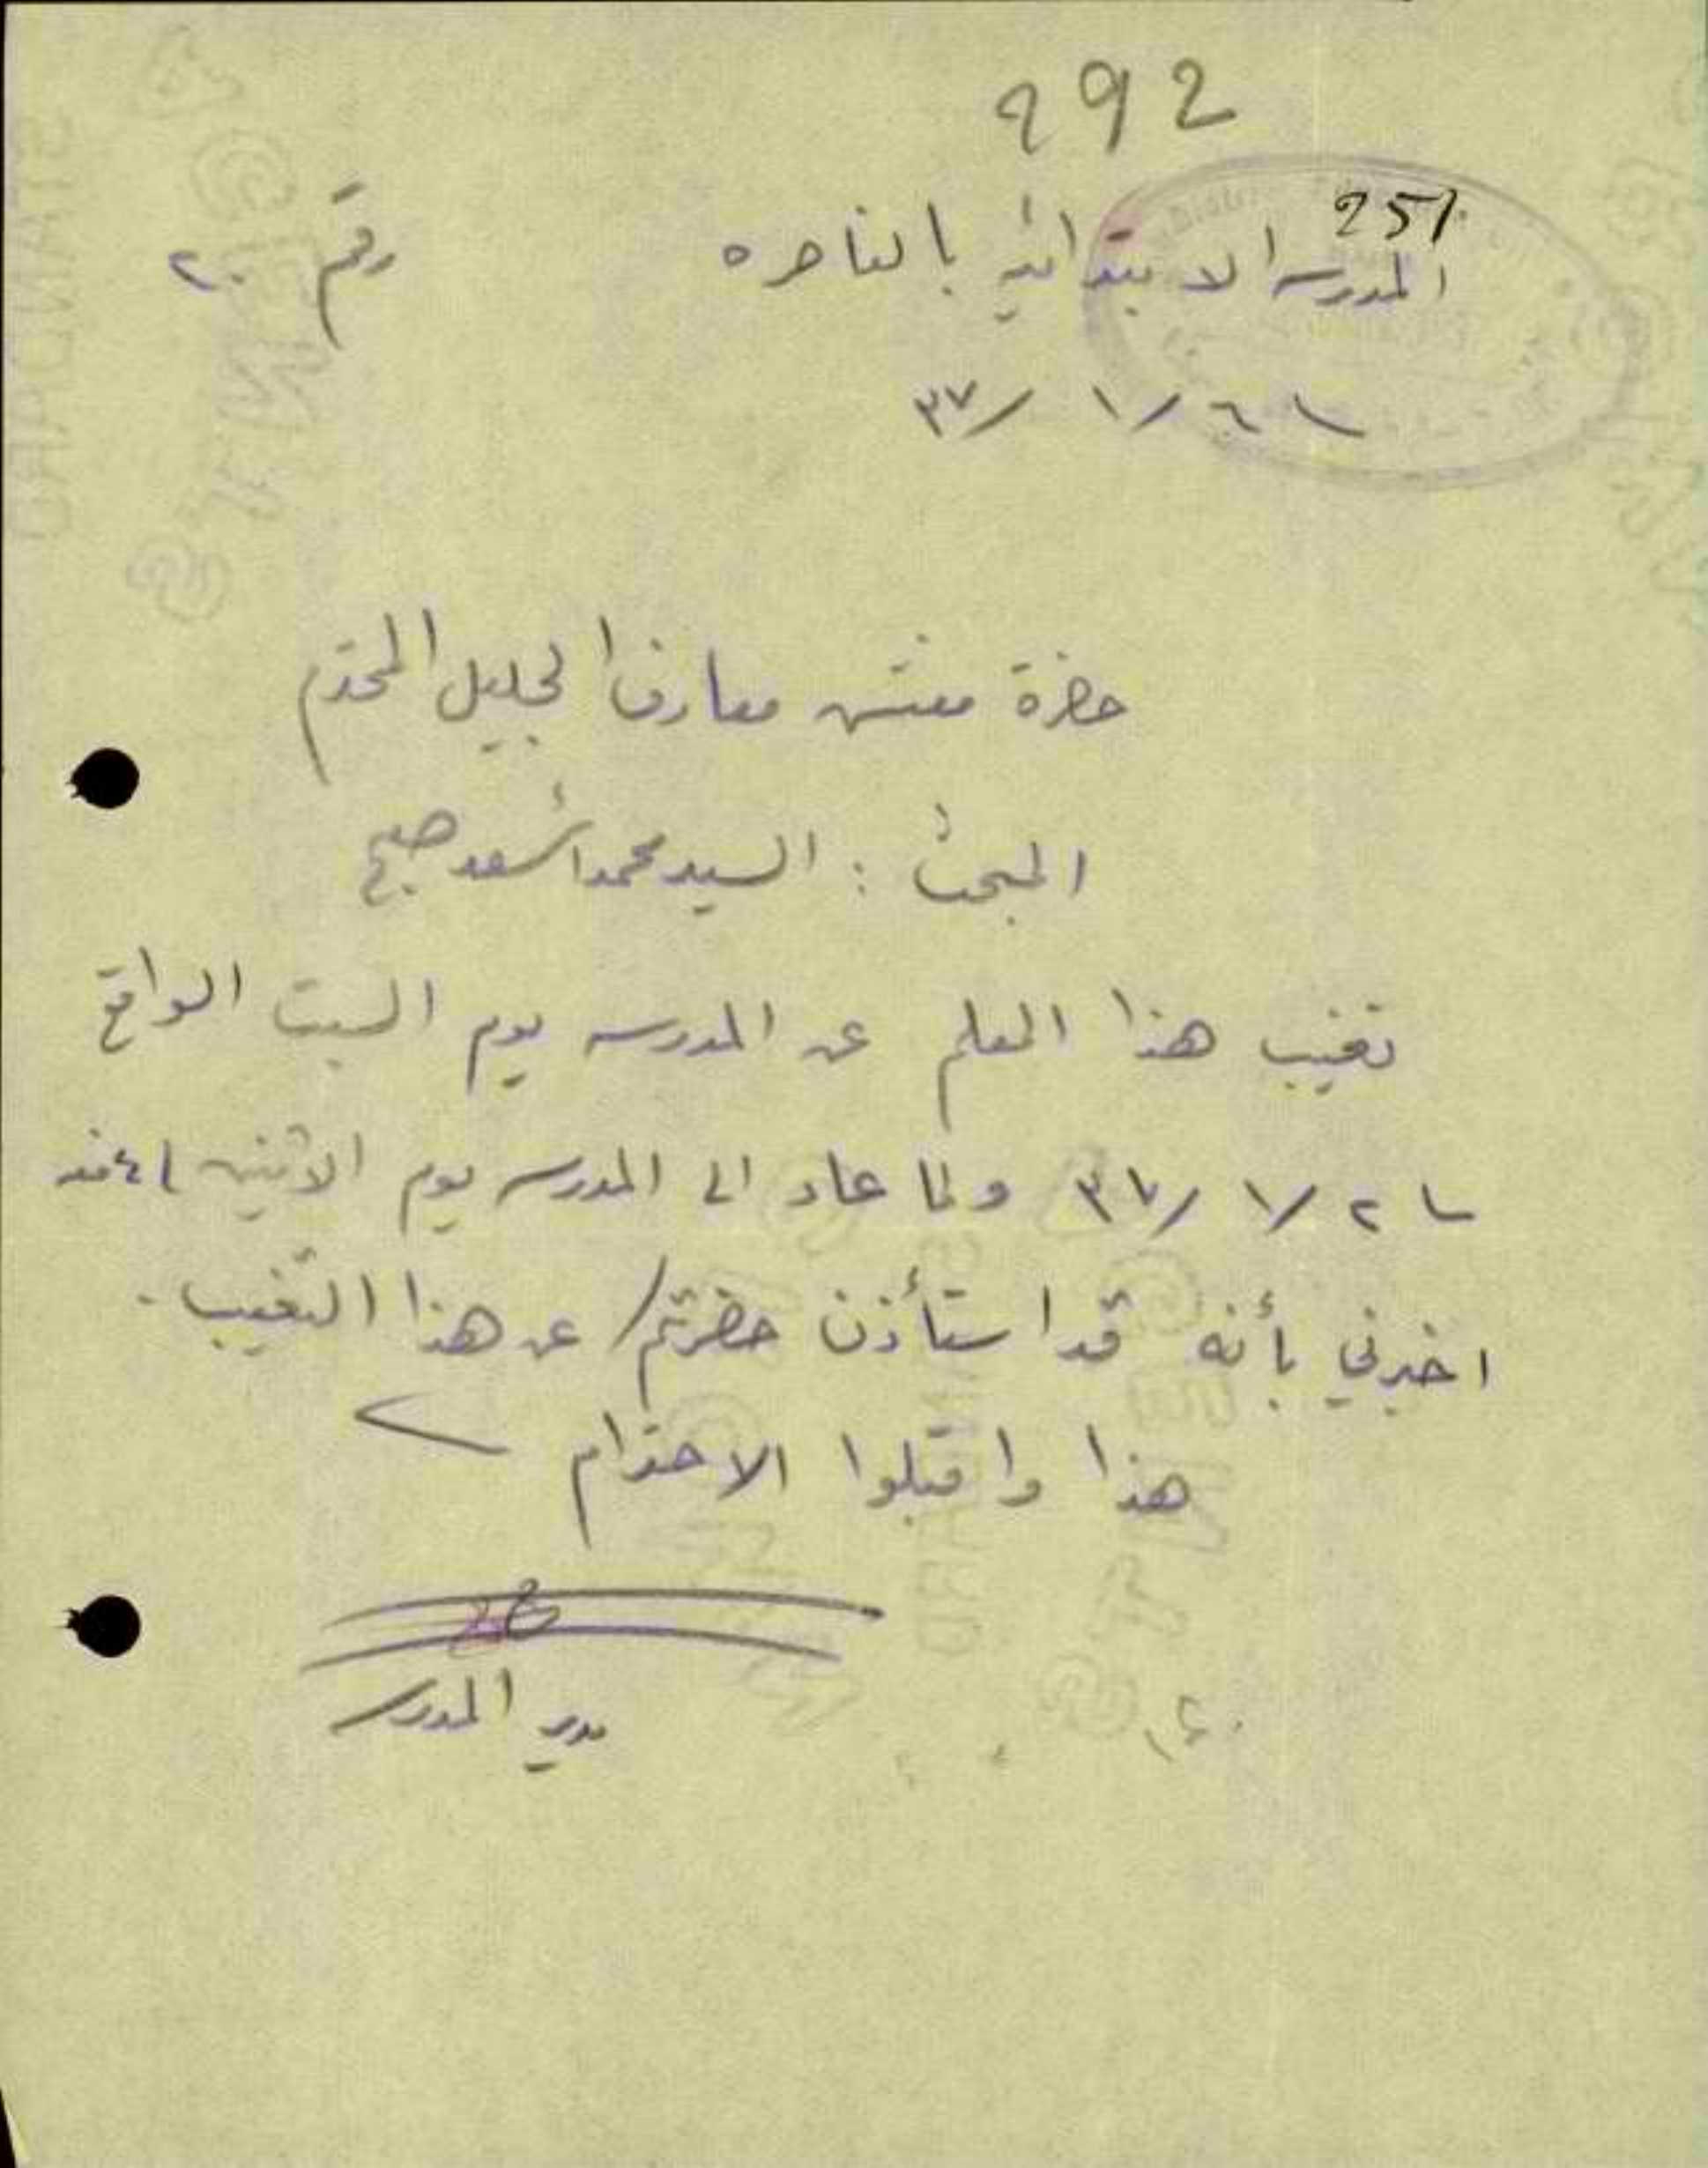 292
251
المدرسه الابتدائيه بالناصره
رقم ٢٠
٣٧/ ١/
حضرة مفتش معارف الجليل المحترم
المبحث : السيد محمد أسعد صبح
تغيب هذا المعلم عن المدرسه يوم السبت الواقع
٢ /١ /٣٧ ولما عاد الى المدرسه يوم الاثنين منه
اخبرني بأنه قد استأذن حضرتكم عن هذا التغيب .
هذا واقبلوا الاحترام
مدير المدرسه